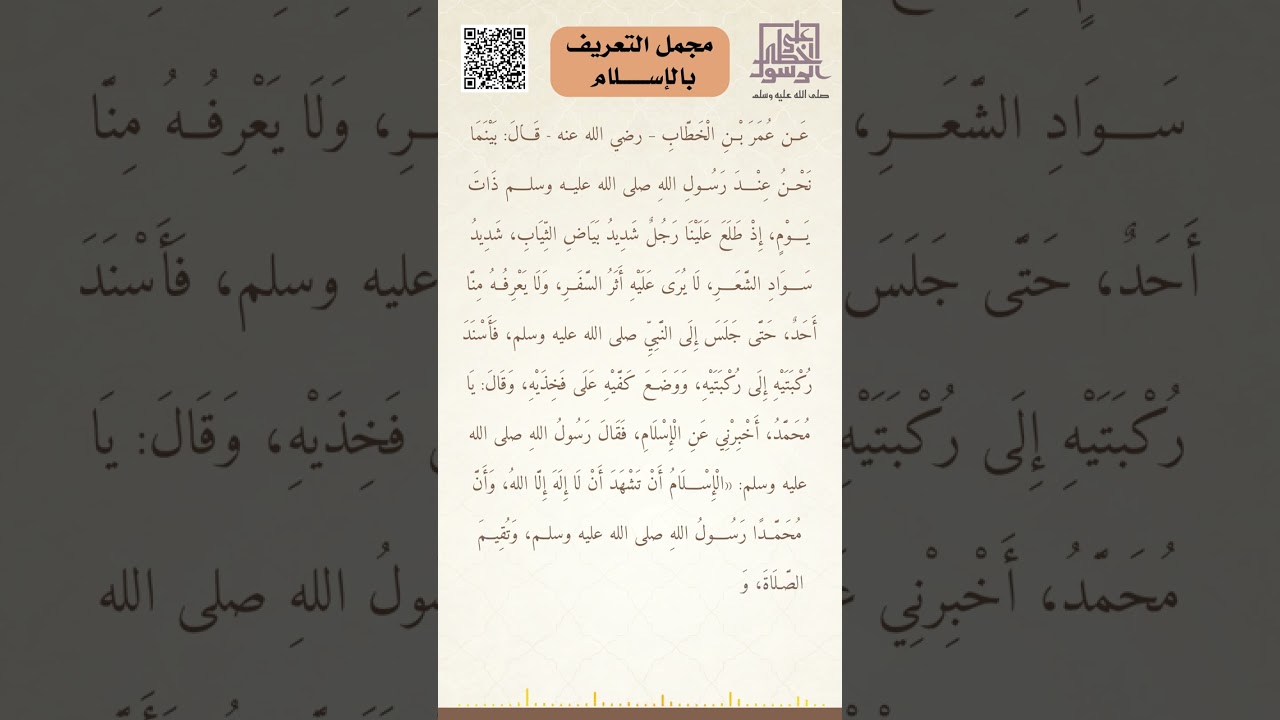 مجمل التعريف
بالإســـلام
على خطى الرسول
صلى الله عليه وسلم
عَـن عُمَرَ بْـنِ الْخَطَّابِ – رضي الله عنه - قَـالَ: بَيْنَمَا
نَحْـنُ عِنْــدَ رَسُـولِ اللهِ صلى الله عليـه وسلــم ذَاتَ
يَــوْمٍ، إِذْ طَلَعَ عَلَيْنَا رَجُلٌ شَدِيدُ بَيَاضِ الثِّيَابِ، شَدِيدُ
سَــوَادِ الشَّعَــرِ، لَا يُرَى عَلَيْهِ أَثَرُ السَّفَـرِ، وَلَا يَعْرِفُـهُ مِنَّا
أَحَدٌ، حَتَّى جَلَسَ إِلَى النَّبِيِّ صلى الله عليه وسلم، فَأَسْنَدَ
رُكْبَتَيْهِ إِلَى رُكْبَتَيْهِ، وَوَضَـعَ كَفَّيْهِ عَلَى فَخِذَيْهِ، وَقَالَ: يَا
مُحَمَّدُ، أَخْبِرْنِي عَنِ الْإِسْلَامِ، فَقَالَ رَسُولُ اللهِ صلى الله
عليه وسلم: «الْإِسْــلَامُ أَنْ تَشْهَدَ أَنْ لَا إِلَهَ إِلَّا اللهُ، وَأَنَّ
مُحَمَّـدًا رَسُــولُ اللهِ صلى الله عليه وسلـم، وَتُقِيـمَ
الصَّـلَاةَ، وَ